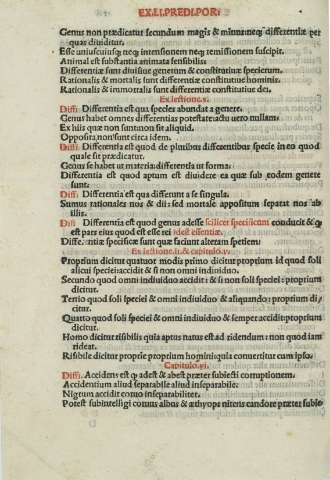 EX.LI.PREDI.POR:
Genus non prædicatur secundum magis & minus: neq differentiæ per
quas diuiditur.
Esse uniuscuiusq neq intensionem neq remissionem suscipit.
Animal est substantia animata sensibilis:
Differentiæ sunt diuisiuæ generum & constitutiuæ specierum.
Rationalis & mortalis sunt differētiæ constitutiuæ hominis.
Rationalis & immortalis sunt differētiæ constitutiuæ dei.
Ex lectione.v.
Diffi: Differentia est qua species abundat a genere.
Genus habet omnes differentias potestate: actu uero nullam.
Ex his quæ non sunt non fit aliquid.
Opposita non sunt circa idem.
Diffi: Differentia est quod de pluribus differentibus specie in eo quod
quale sit prædicatur.
Genus se habet ut materia: differentia ut forma.
Differentia est quod aptum est diuidere ea quæ sub eodem genere
sunt:
Diffi: Differentia est qua differunt a se singula.
Sumus rationales nos & dii: sed mortale appositum separat nos ab
illis.
Diffi Differentia est quod genus adesse scilicet specificum conducit & q
est pars eius quod est esse rei idest essentiæ.
Differentiæ specificæ sunt quæ faciunt alteram speciem:
Ex lectione.ii. & capitulo.v.
Proprium dicitur quatuor modis primo dicitur proprium id quod soli
alicui speciei accidit & si non omni indiuiduo.
Secundo quod omni indiuiduo accidit: & si non soli speciei: proprium
dicitur.
Tertio quod soli speciei & omni indiuiduo & aliquando: proprium di
citur.
Quarto quod soli speciei & omni indiuiduo & semper accidit: proprium
dicitur.
Homo dicitur risibilis quia aptus natus est ad ridendum: non quod iam
rideat.
Risibile dicitur proprie proprium hominis: quia conuertitur cum ipso.
Capitulo.vi.
Diffi: Accidens est q adest & abest præter subiecti corruptionem.
Accidentium aliud separabile aliud inseparabile.
Nigrum accidit coruo inseparabiliter.
Potest subintelligi coruus albus & æthyops nitens candore præter subie